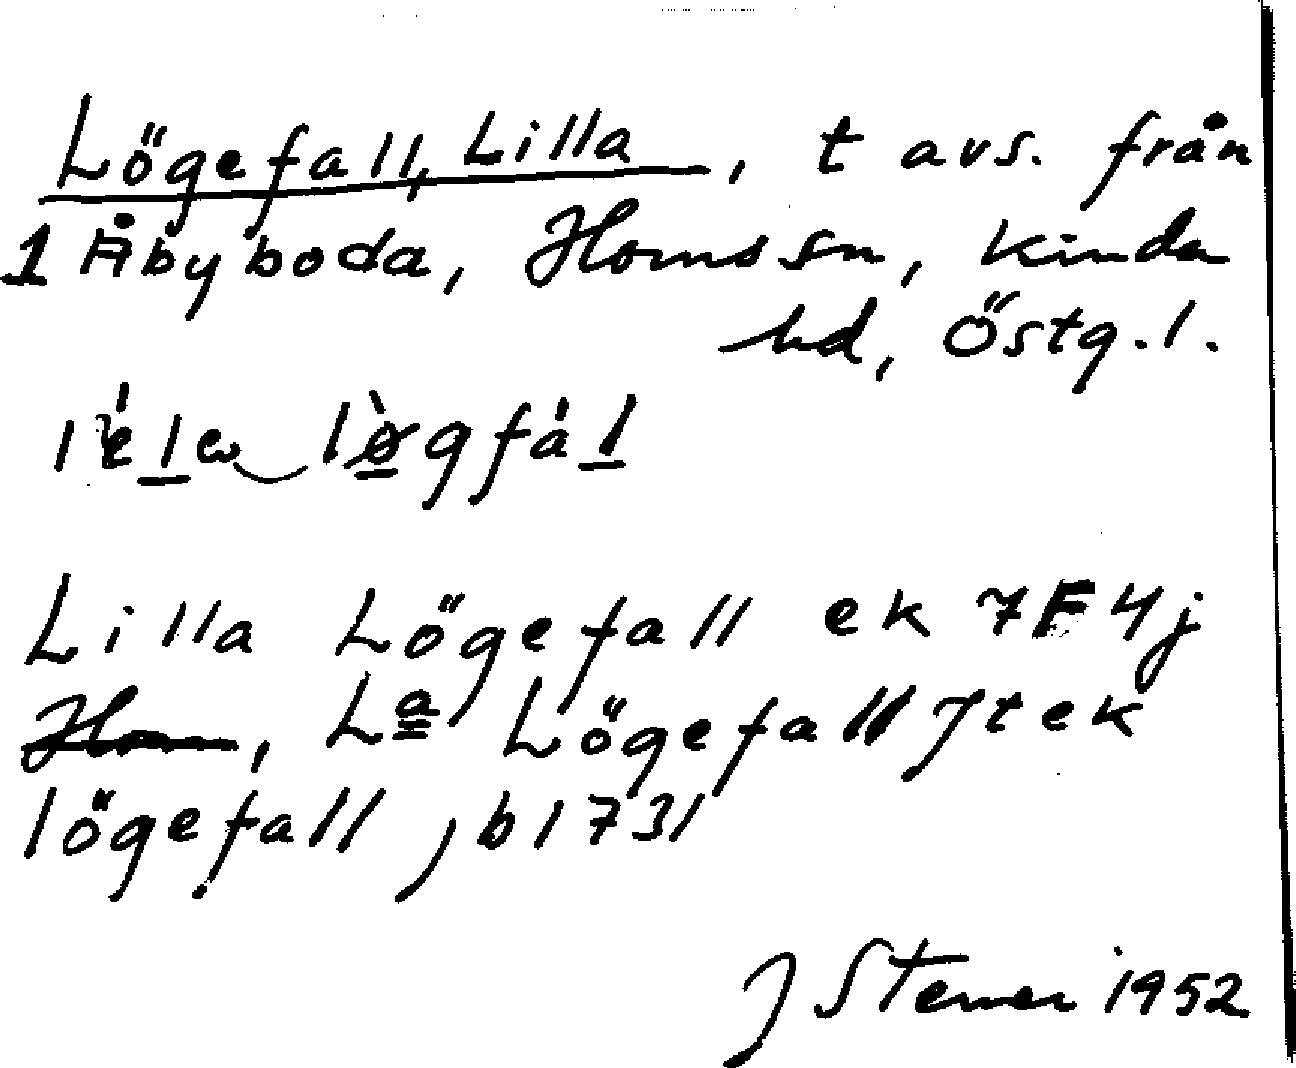 Lögefall, Lilla, t avs. från
1 Åbyboda, Horns sn, Kinda
hd, Östg.l.
Lilla Lögefall ek 7F4j
Horn, La Lögefall Jtek
lögefall, b1731
J Stemer 1952